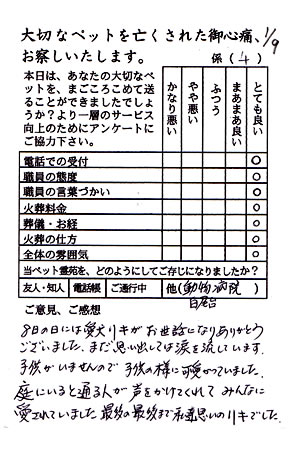 大切なペットを亡くされた御心痛、 1/9
お察しいたします。 係(4)
本日は、あなたの大切なペ
ットを、まごころこめて送
ることができましたでしょ
うか?より一層のサービス
向上のためにアンケートに
ご協力下さい。
かなり悪い
やや悪い
ふつう
まあまあ良い
とても良い
電話での受付 ○
職員の態度 ○
職員の言葉づかい ○
火葬料金 ○
葬儀・お経 ○
火葬の仕方 ○
全体の雰囲気 ○
当ペット霊苑を、どのようにしてご存じになりましたか?
友人・知人 電話帳 ご通行中 他(動物病院
ご意見、ご感想
8日の日には愛犬リキがお世話になりありがとう
ございました。まだ思い出しては涙を流しています。
子供がいませんので子供の様に可愛がっていました。
庭にいると通る人が声をかけてくれてみんなに
愛されていました最後の最後まで 思いのリキでした。